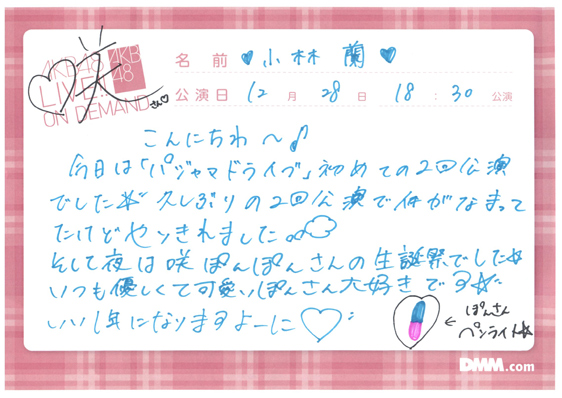 AKB48
LIVE!!
ON DEMAND
AKB
48
咲
さん♡
名前 ♥小林蘭♥
公演日 12月28日 18:30公演
こんにちわ〜♪
今日は「パジャマドライブ」初めての2回公演
でした☆久しぶりの2回公演で体がなまって
たけどやりきれました。
そして夜は咲ぽんぽんさんの生誕祭でした☆
いつも優しくて可愛いぽんさん大好きです☆
いい1年になりますよーに♡
←ぽんさん
ペンライト☆
DMM.com